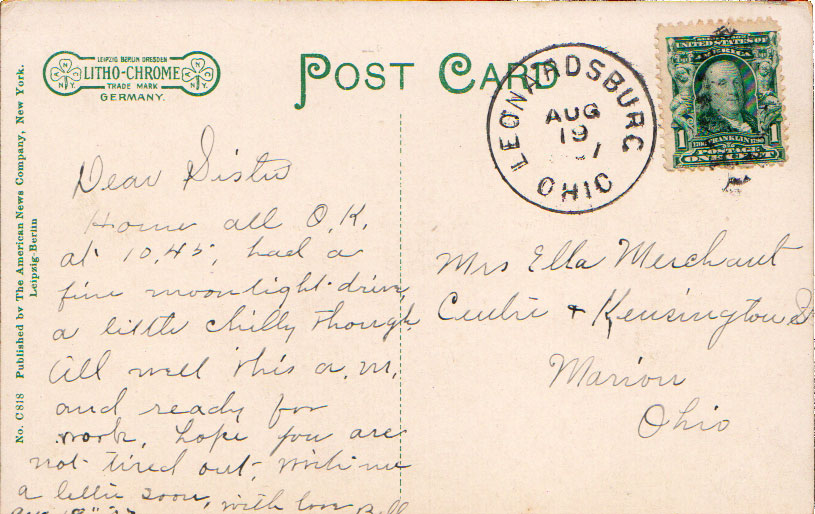 LEIPZIG BERLIN DRESDEN
LITHO-CHROME
TRADE MARK
GERMANY.
A N N.Y.
A N N.Y.
POST CARD
LEONARDSBURG
AUG
19
OHIO
UNITED STATES OF
AMERICA
1 FRANKLIN 1
POSTAGE
ONE CENT
No. C818 Published by The American News Company, New York.
Leipzig-Berlin
Dear Sister
Home all O.K.
at 10.45, had a
fine moonlight drive,
a little chilly though.
All well this a.m.
and ready for
work, hope you are
not tired out, write me
a letter soon, with love Bell
Mrs Ella Merchant
Centre + Kensington
Marion
Ohio